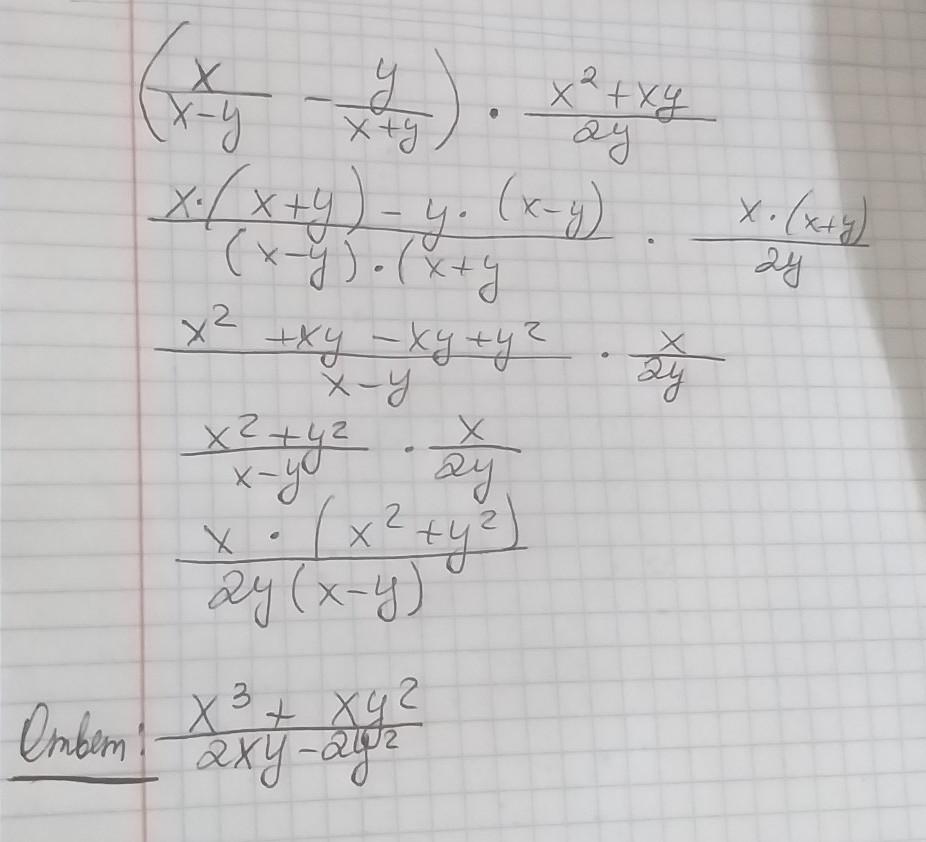 (x/(x-y) - y/(x+y)) · (x²+xy)/(2y)
(x·(x+y) - y·(x-y))/((x-y)·(x+y) · (x·(x+y))/(2y)
(x² +xy -xy+y²)/(x-y) · x/(2y)
(x²+y²)/(x-y) · x/(2y)
(x · (x²+y²))/(2y(x-y))
Ответ: (x³ + xy²)/(2xy-2y²)